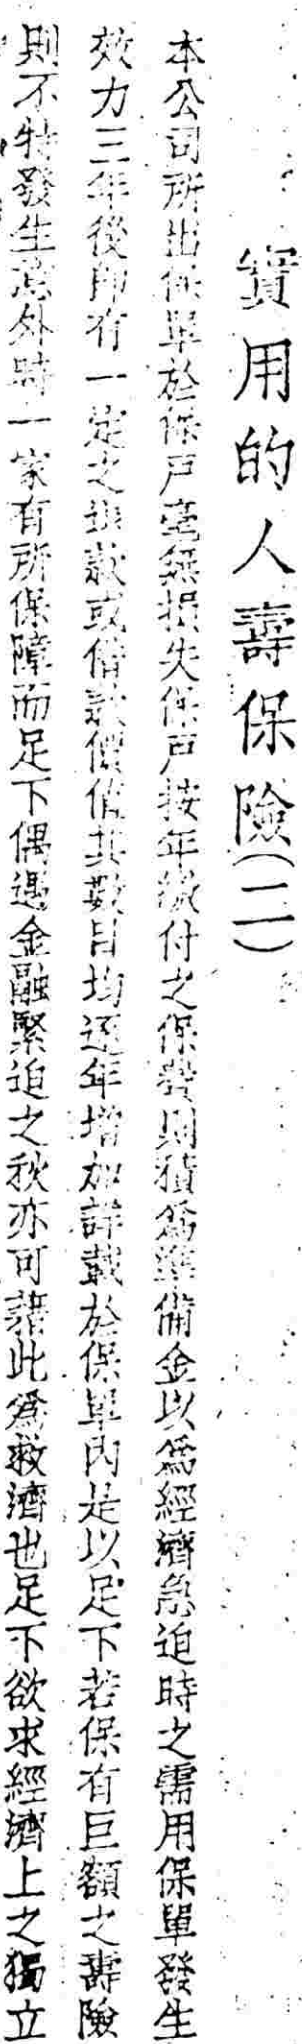 實用的人壽保險(二)
本公司所出保單於保戶毫無損失保戶按年繳付之保費則積爲準備金以爲經濟急迫時之需用保單發生
效力三年後即有一定之退款或借款價值其數目均逐年增加詳載於保單內是以足下若保有巨額之壽險
則不特發生意外時一家有所保障而足下偶遇金融緊迫之秋亦可藉此爲救濟也足下欲求經濟上之獨立